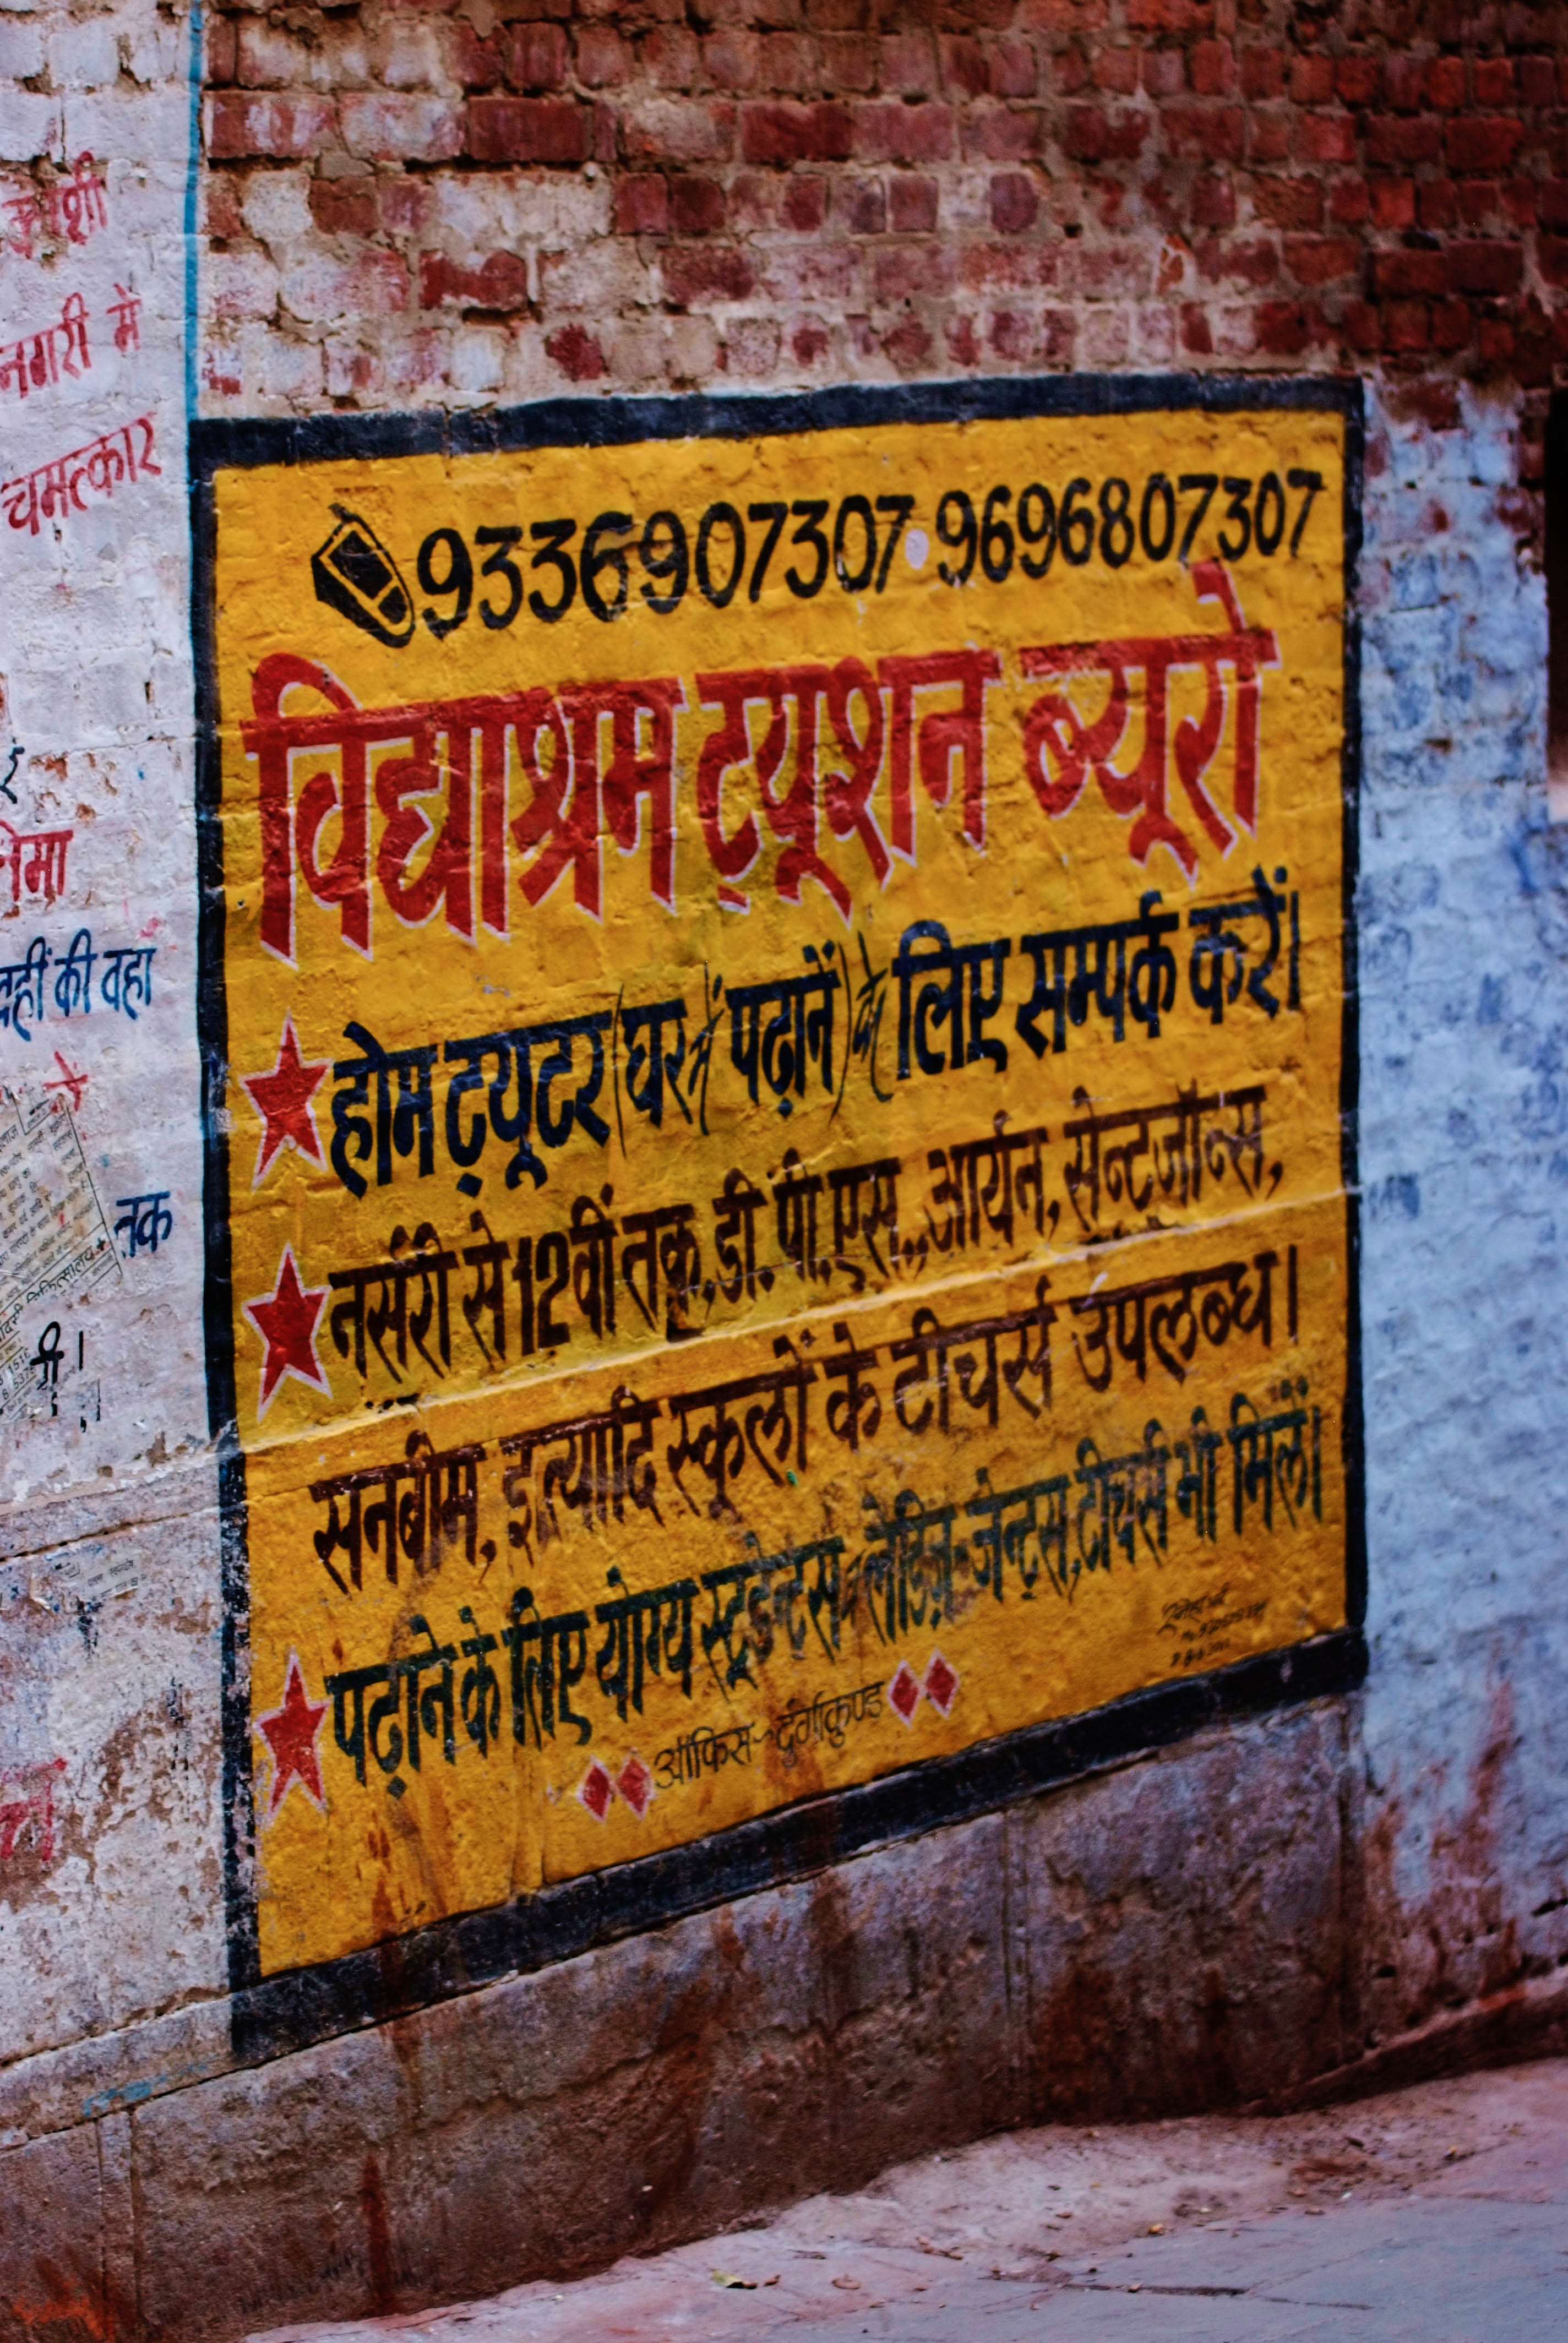 काशी
नगरी में
चमत्कार
नेमा
वहीं की वहा
के
तक
9336907307 • 9696807307
विद्याश्रम ट्यूशन ब्यूरो
★ होम ट्यूटर (घर में पढ़ानें) के लिए सम्पर्क करें।
★ नर्सरी से 12वीं तक, डी. पी. एस., आर्यन, सेन्टजॉन्स,
सनबीम, इत्यादि स्कूलों के टीचर्स उपलब्ध।
★ पढ़ाने के लिए योग्य स्टूडेन्टस लेडिज़ जेन्ट्स, टीचर्स भी मिलें।
ऑफिस~दुर्गाकुण्ड